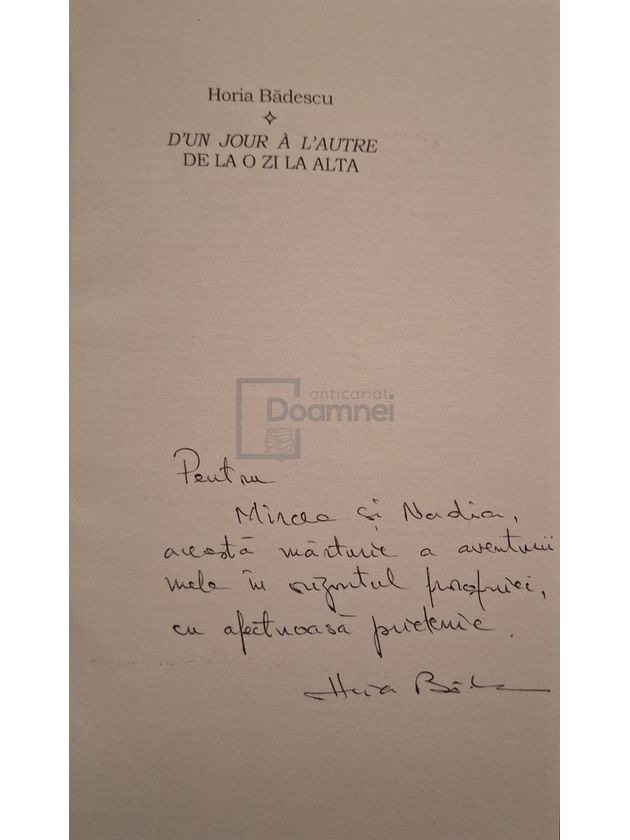 Horia Bădescu
D'UN JOUR À L'AUTRE
DE LA O ZI LA ALTA
anticariat
Doamnei
Pentru
Mircea și Nadia,
această mărturie a aventurii
mele în orizontul
cu afectuoasă prietenie.
Horia Bădescu